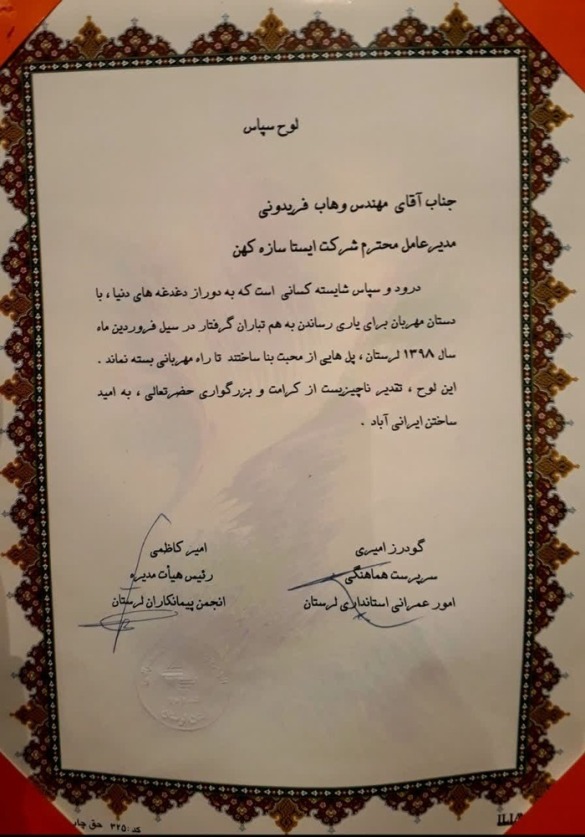 لوح سپاس
جناب آقای مهندس وهاب فریدونی
مدیرعامل محترم شرکت ایستا سازه کهن
درود و سپاس شایسته کسانی است که به دوراز دغدغه های دنیا ، با
دستان مهربان برای یاری رساندن به هم تباران گرفتار در سیل فروردین ماه
سال ۱۳۹۸ لرستان ، پل هایی از محبت بنا ساختند تا راه مهربانی بسته نماند .
این لوح ، تقدیر ناچیزیست از کرامت و بزرگواری حضرتعالی ، به امید
ساختن ایرانی آباد .
گودرز امیری
سرپرست هماهنگی
امور عمرانی استانداری لرستان
امیر کاظمی
رئیس هیأت مدیره
انجمن پیمانکاران لرستان
کد: ۳۲۵ حق چاپ